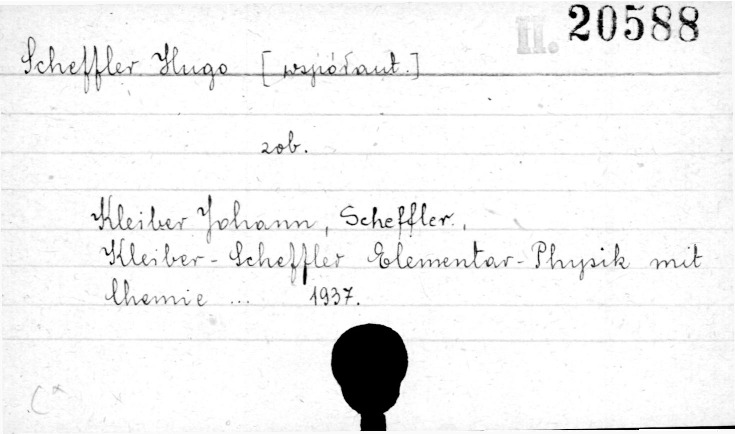 II. 20588
Scheffler Hugo [współaut.]
zob.
Kleiber Johann, Scheffler.,
Kleiber-Scheffler Elementar-Physik mit
Chemie ... 1937.
C*